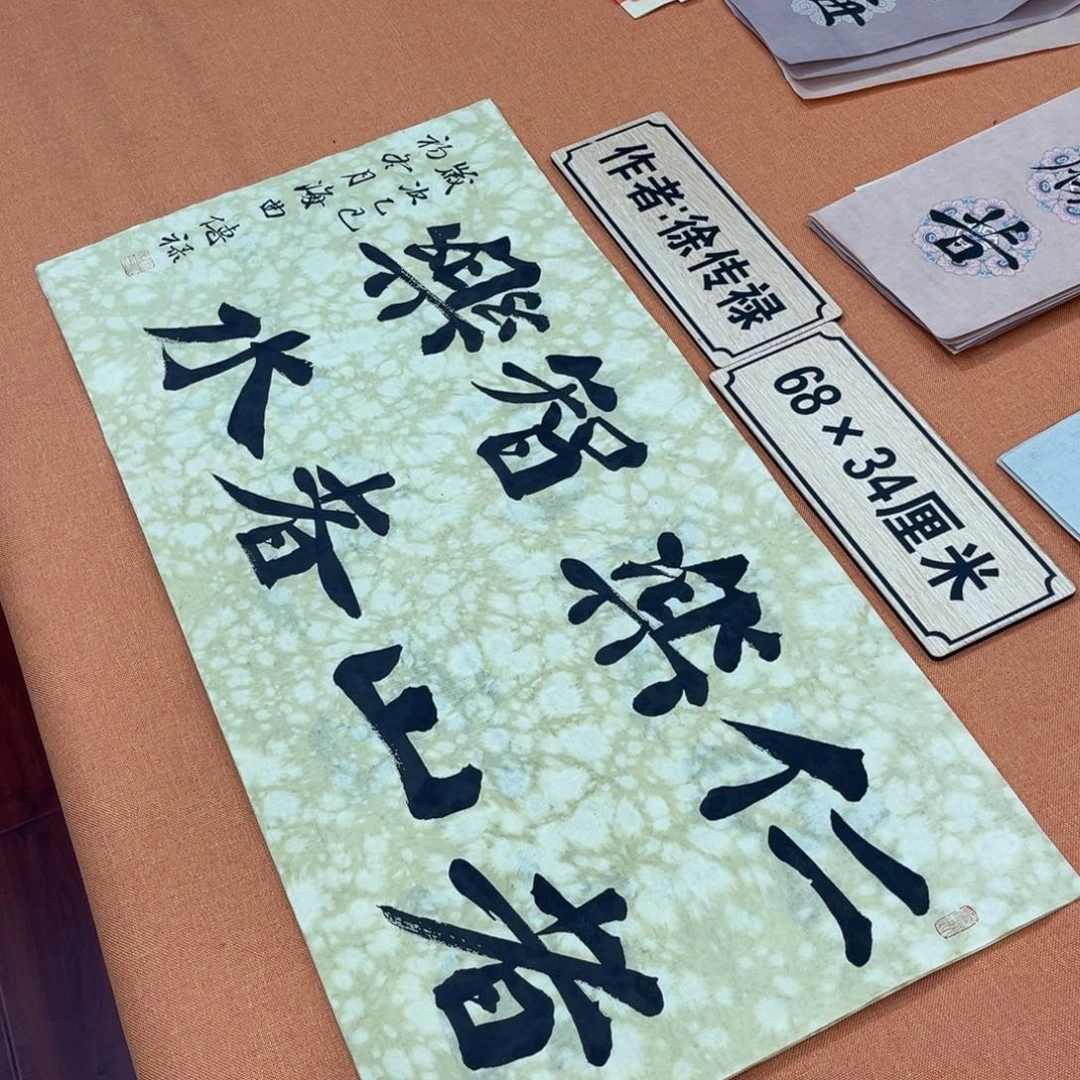 仁者
樂山
智者
樂水
歲次乙巳
初冬月海曲傳祿
作者:徐传禄
68×34厘米